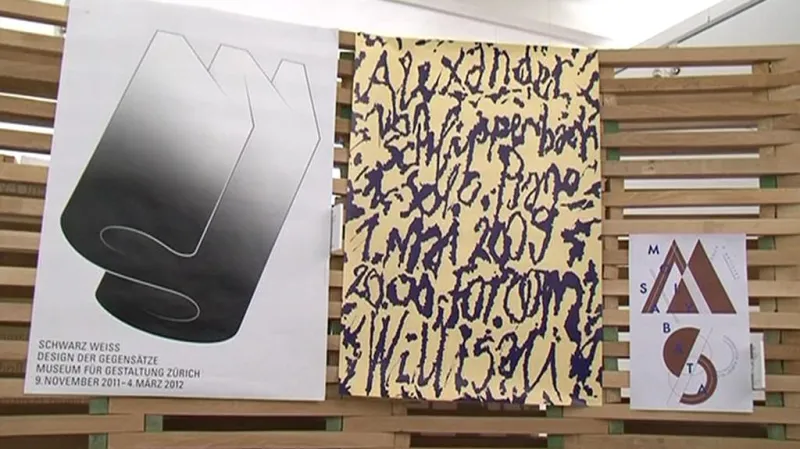 SCHWARZ WEISS
DESIGN DER GEGENSÄTZE
MUSEUM FÜR GESTALTUNG ZÜRICH
9. NOVEMBER 2011 – 4. MÄRZ 2012
Alexander
von Schlippenbach
Solo. Piano
1. Mai 2009
20.00 foroom
Willisau
M
S
A
B
A
T
A